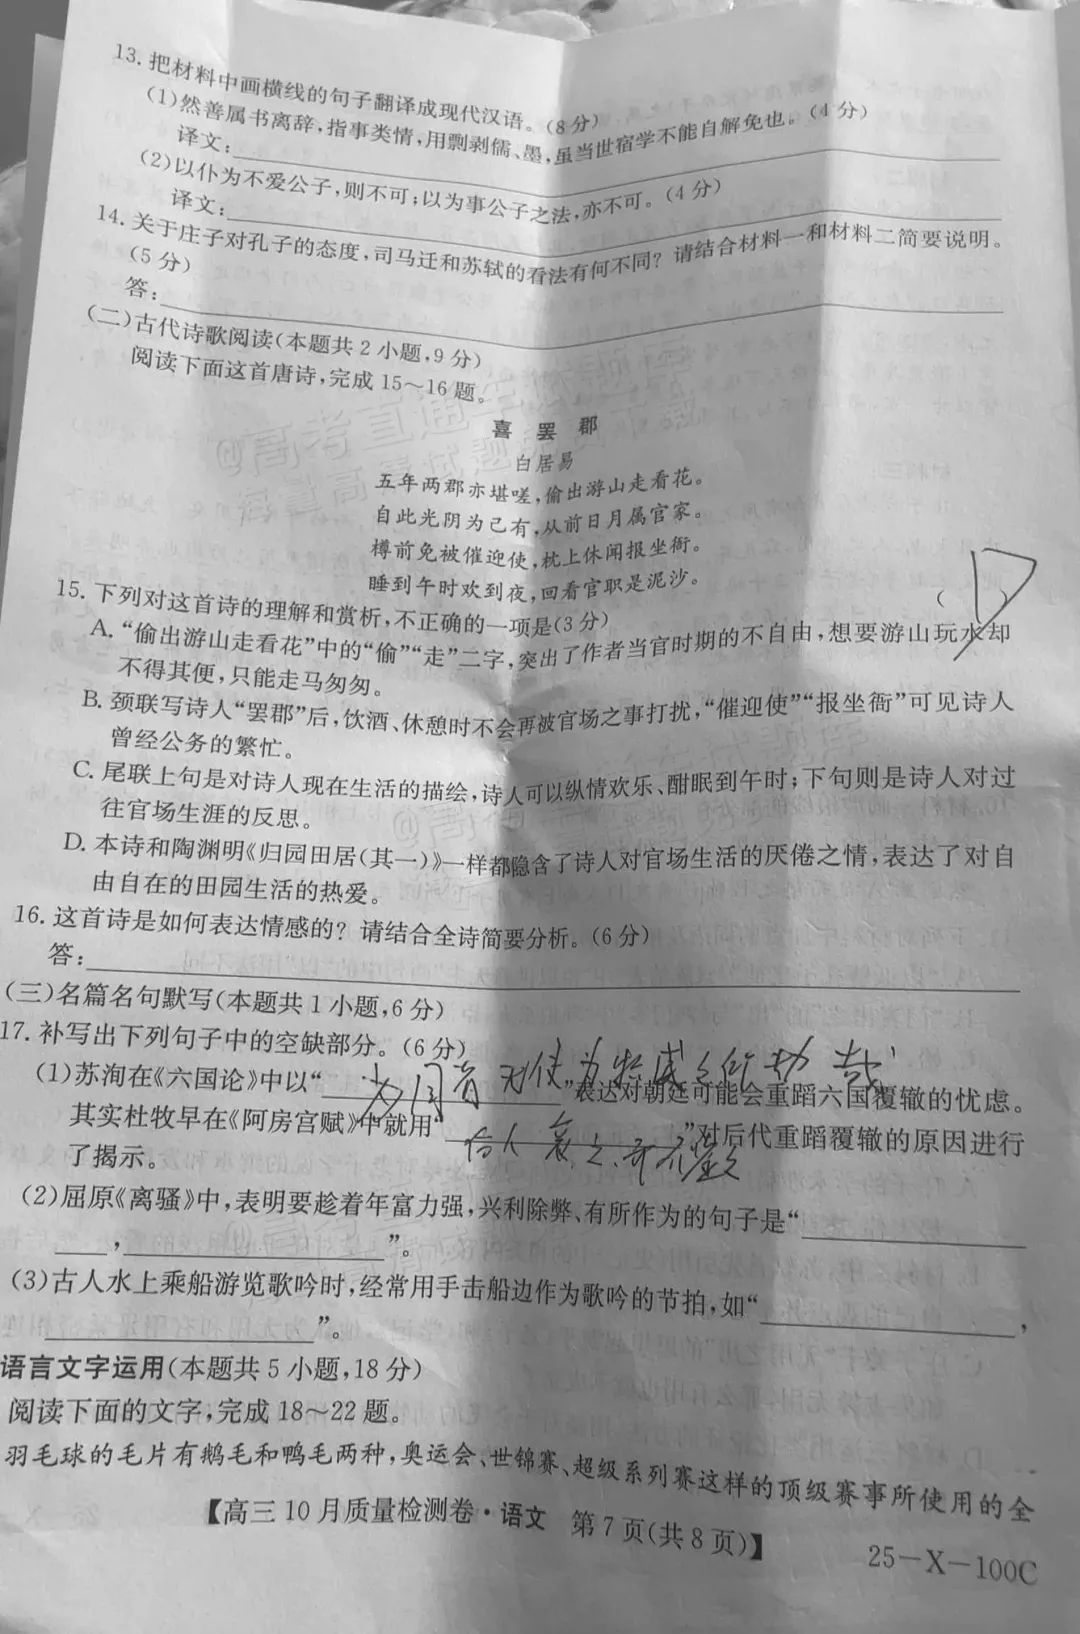 13. 把材料中画横线的句子翻译成现代汉语。(8分)
(1)然善属书离辞,指事类情,用剽剥儒、墨,虽当世宿学不能自解免也。(4分)
译文:
(2)以仆为不爱公子,则不可;以为事公子之法,亦不可。(4分)
译文:
14. 关于庄子对孔子的态度,司马迁和苏轼的看法有何不同?请结合材料一和材料二简要说明。
(5分)
答:
(二)古代诗歌阅读(本题共2小题,9分)
阅读下面这首唐诗,完成15~16题。
喜罢郡
白居易
五年两郡亦堪嗟,偷出游山走看花。
自此光阴为己有,从前日月属官家。
樽前免被催迎使,枕上休闻报坐衙。
睡到午时欢到夜,回看官职是泥沙。
15. 下列对这首诗的理解和赏析,不正确的一项是(3分) ( D )
A. “偷出游山走看花”中的“偷”“走”二字,突出了作者当官时期的不自由,想要游山玩水却
不得其便,只能走马匆匆。
B. 颈联写诗人“罢郡”后,饮酒、休憩时不会再被官场之事打扰,“催迎使”“报坐衙”可见诗人
曾经公务的繁忙。
C. 尾联上句是对诗人现在生活的描绘,诗人可以纵情欢乐、酣眠到午时;下句则是诗人对过
往官场生涯的反思。
D. 本诗和陶渊明《归园田居(其一)》一样都隐含了诗人对官场生活的厌倦之情,表达了对自
由自在的田园生活的热爱。
16. 这首诗是如何表达情感的?请结合全诗简要分析。(6分)
答:
(三)名篇名句默写(本题共1小题,6分)
17. 补写出下列句子中的空缺部分。(6分)
(1)苏洵在《六国论》中以“为国者无使为积威之所劫哉”表达对朝廷可能会重蹈六国覆辙的忧虑。
其实杜牧早在《阿房宫赋》中就用“后人哀之而不鉴之”对后代重蹈覆辙的原因进行
了揭示。
(2)屈原《离骚》中,表明要趁着年富力强,兴利除弊、有所作为的句子是“
,”。
(3)古人水上乘船游览歌吟时,经常用手击船边作为歌吟的节拍,如“,
”。
语言文字运用(本题共5小题,18分)
阅读下面的文字,完成18~22题。
羽毛球的毛片有鹅毛和鸭毛两种,奥运会、世锦赛、超级系列赛这样的顶级赛事所使用的全
【高三10月质量检测卷·语文 第7页(共8页)】
25-X-100C